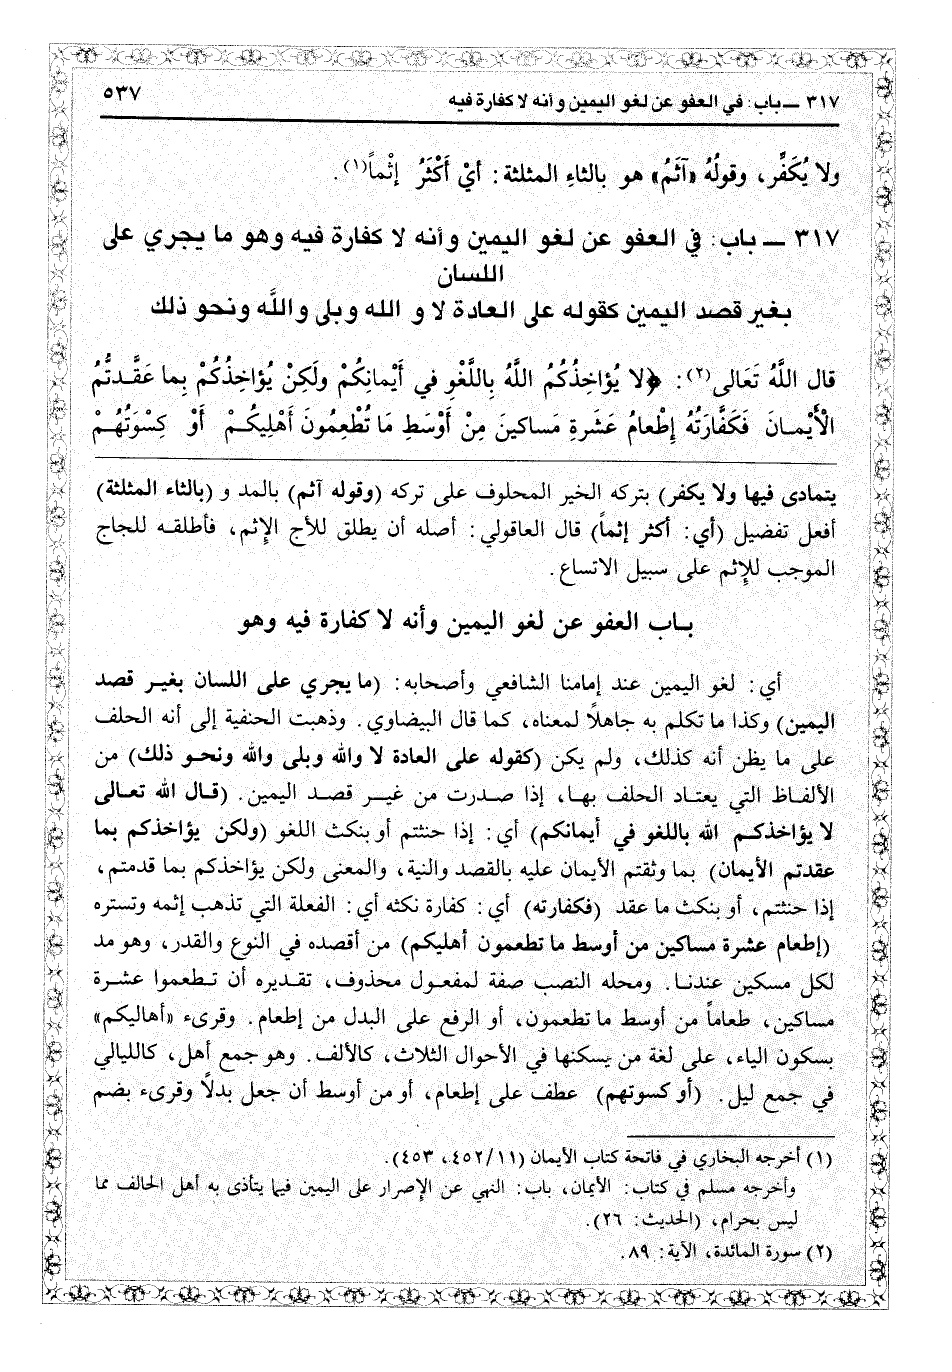 ٣١٧ ـ باب: في العفو عن لغو اليمين وأنه لا كفارة فيه ٥٣٧
ولا يُكَفِّر، وقولُهُ «آثَمُ» هو بالثاءِ المثلثة: أيْ أَكْثَرُ إثْماً(١).
٣١٧ ـ باب: في العفو عن لغو اليمين وأنه لا كفارة فيه وهو ما يجري على
اللسان
بغير قصد اليمين كقوله على العادة لا و الله وبلى واللَّه ونحو ذلك
قال اللَّهُ تَعَالى(٢): ﴿لا يُؤاخِذُكُمُ اللَّهُ بِاللَّغْوِ في أَيْمانِكُمْ ولَكِنْ يُؤاخِذُكُمْ بِما عَقَّدتُّمُ
الْأَيْمـانَ فَكَفَّارَتُهُ إطْعامُ عَشَرةِ مَساكينَ مِنْ أَوْسَطِ مَا تُطْعِمُونَ أَهْلِيكُـمْ أَوْ كِسْوَتُهُـمْ
يتمادى فيها ولا يكفر) بتركه الخير المحلوف على تركه (وقوله آثم) بالمد و (بالثاء المثلثة)
أفعل تفضيل (أي: أكثر إثماً) قال العاقولي: أصله أن يطلق للأج الإثم، فأطلقه للجاج
الموجب للإثم على سبيل الاتساع.
بـاب العفو عن لغو اليمين وأنه لا كفارة فيه وهو
أي: لغو اليمين عند إمامنا الشافعي وأصحابه: (ما يجري على اللسان بغير قصد
اليمين) وكذا ما تكلم به جاهلاً لمعناه، كما قال البيضاوي. وذهبت الحنفية إلى أنه الحلف
على ما يظن أنه كذلك، ولم يكن (كقوله على العادة لا والله وبلى والله ونحو ذلك) من
الألفاظ التي يعتاد الحلف بها، إذا صدرت من غير قصد اليمين. (قال الله تعالى
لا يؤاخذكم الله باللغو في أيمانكم) أي: إذا حنثتم أو بنكث اللغو (ولكن يؤاخذكم بما
عقدتم الأيمان) بما وثقتم الأيمان عليه بالقصد والنية، والمعنى ولكن يؤاخذكم بما قدمتم،
إذا حنثتم، أو بنكث ما عقد (فكفارته) أي: كفارة نكثه أي: الفعلة التي تذهب إثمه وتستره
(إطعام عشرة مساكين من أوسط ما تطعمون أهليكم) من أقصده في النوع والقدر، وهو مد
لكل مسكين عندنـا. ومحله النصب صفة لمفعول محذوف، تقديره أن تطعموا عشرة
مساكين، طعاماً من أوسط ما تطعمون، أو الرفع على البدل من إطعام. وقرىء «أهاليكم»
بسكون الياء، على لغة من يسكنها في الأحوال الثلاث، كالألف. وهو جمع أهل، كالليالي
في جمع ليل. (أو كسوتهم) عطف على إطعام، أو من أوسط أن جعل بدلاً وقرىء بضم
(١) أخرجه البخاري في فاتحة كتاب الأيمان (٤٥٢/١١، ٤٥٣).
وأخرجه مسلم في كتاب: الأيمان، باب: النهي عن الإصرار على اليمين فيما يتأذى به أهل الحالف مما
ليس بحرام، (الحديث: ٢٦).
(٢) سورة المائدة، الآية: ٨٩.